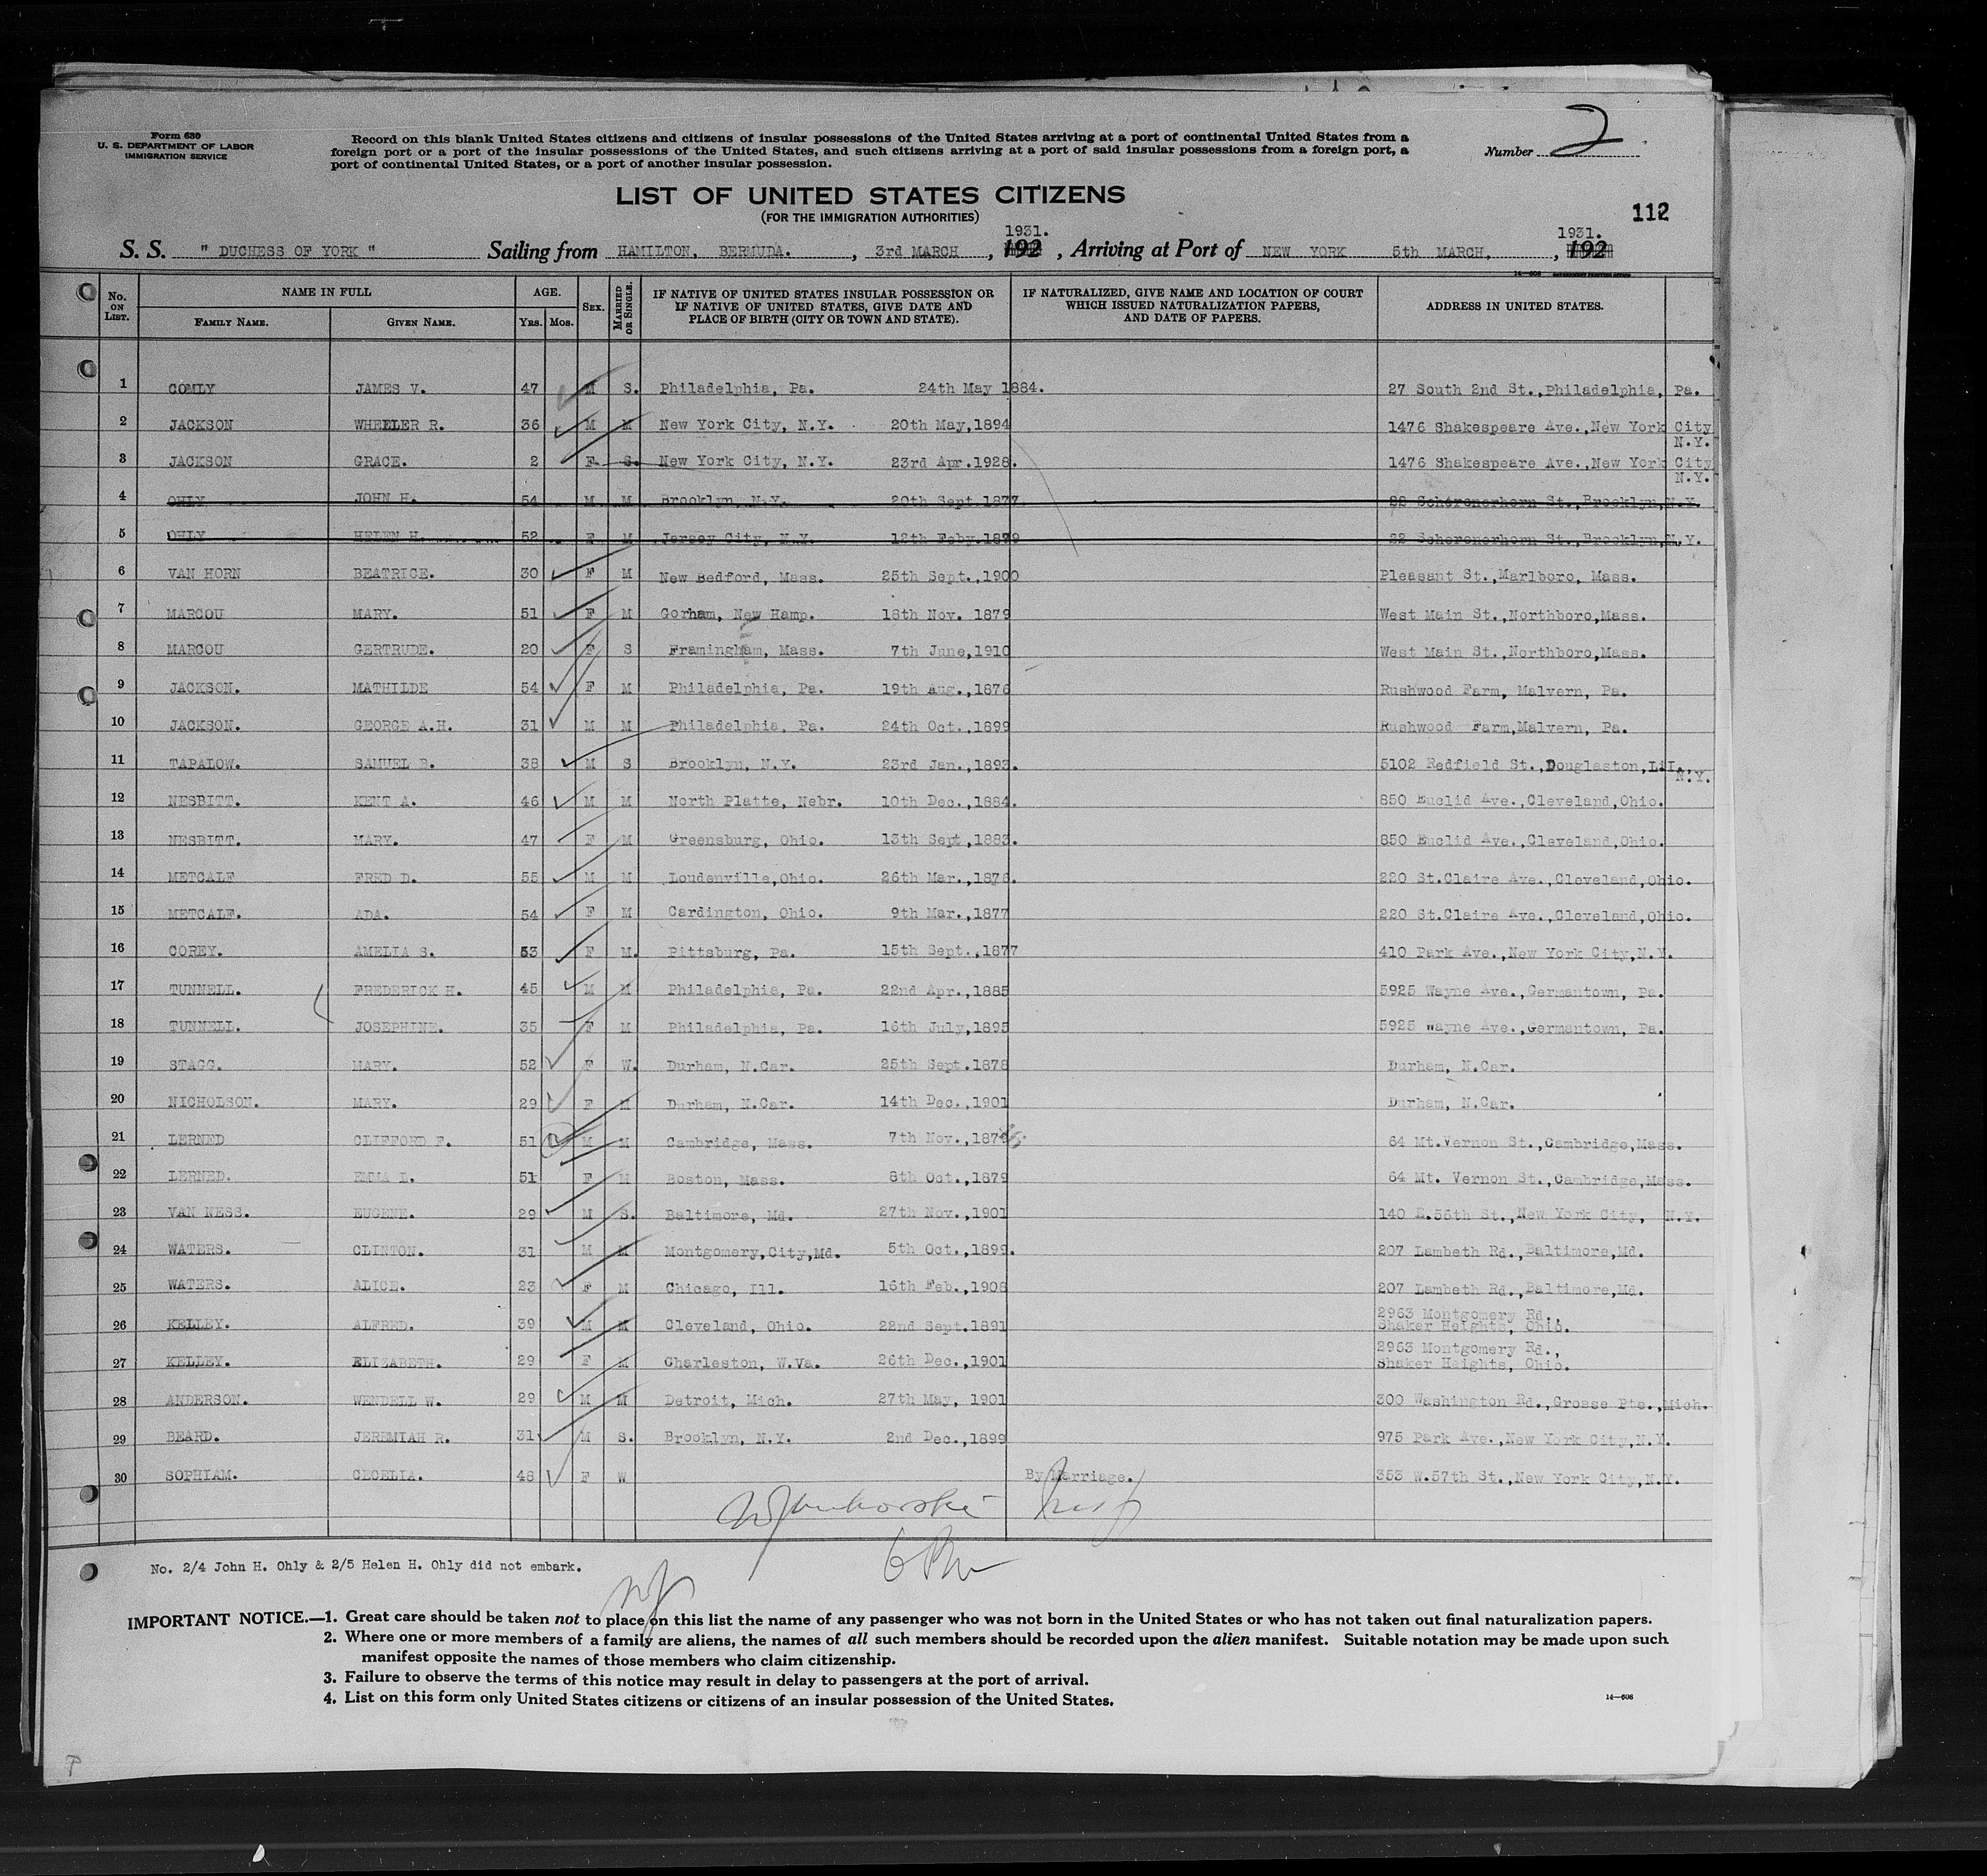 Form 630
U. S. DEPARTMENT OF LABOR
IMMIGRATION SERVICE
Record on this blank United States citizens and citizens of insular possessions of the United States arriving at a port of continental United States from a
foreign port or a port of the insular possessions of the United States, and such citizens arriving at a port of said insular possessions from a foreign port, a
port of continental United States, or a port of another insular possession.
Number 2
LIST OF UNITED STATES CITIZENS
(FOR THE IMMIGRATION AUTHORITIES)
112
S. S. " DUCHESS OF YORK " Sailing from HAMILTON, BERMUDA. , 3rd MARCH , 1931. 192 , Arriving at Port of NEW YORK 5th MARCH, , 1931. 192
14—608 GOVERNMENT PRINTING OFFICE
No. ON LIST. NAME IN FULL FAMILY NAME. GIVEN NAME. AGE. YRS. MOS. SEX. MARRIED OR SINGLE. IF NATIVE OF UNITED STATES INSULAR POSSESSION OR IF NATIVE OF UNITED STATES, GIVE DATE AND PLACE OF BIRTH (CITY OR TOWN AND STATE). IF NATURALIZED, GIVE NAME AND LOCATION OF COURT WHICH ISSUED NATURALIZATION PAPERS, AND DATE OF PAPERS. ADDRESS IN UNITED STATES.
1 COMLY JAMES V. 47 M S. Philadelphia, Pa. 24th May 1884. 27 South 2nd St.,Philadelphia, Pa.
2 JACKSON WHEELER R. 36 M M New York City, N.Y. 20th May,1894 1476 Shakespeare Ave.,New York City N.Y.
3 JACKSON GRACE. 2 F S. New York City, N.Y. 23rd Apr.1928. 1476 Shakespeare Ave.,New York City N.Y.
4 OHLY JOHN H. 54 M M Brooklyn, N.Y. 20th Sept.1877 22 Scherenerhorn St.,Brooklyn,N.Y.
5 OHLY HELEN H. 52 F M Jersey City, N.Y. 12th Feby.1879 22 Scherenerhorn St.,Brooklyn,N.Y.
6 VAN HORN BEATRICE. 30 F M New Bedford, Mass. 25th Sept.,1900 Pleasant St.,Marlboro, Mass.
7 MARCOU MARY. 51 F M Gorham, New Hamp. 18th Nov. 1879 West Main St.,Northboro,Mass.
8 MARCOU GERTRUDE. 20 F S Framingham, Mass. 7th June,1910 West Main St.,Northboro,Mass.
9 JACKSON. MATHILDE 54 F M Philadelphia, Pa. 19th Aug.,1876 Rushwood Farm, Malvern, Pa.
10 JACKSON. GEORGE A.H. 31 M M Philadelphia, Pa. 24th Oct.,1899 Rushwood Farm,Malvern, Pa.
11 TAPALOW. SAMUEL B. 38 M S Brooklyn, N.Y. 23rd Jan.,1893. 5102 Redfield St.,Douglaston,L.I., N.Y.
12 NESBITT. KENT A. 46 M M North Platte, Nebr. 10th Dec.,1884. 850 Euclid Ave.,Cleveland,Ohio.
13 NESBITT. MARY. 47 F M Greensburg, Ohio. 13th Sept,1883. 850 Euclid Ave.,Cleveland,Ohio.
14 METCALF FRED D. 55 M M Loudenville,Ohio. 26th Mar.,1876. 220 St.Claire Ave.,Cleveland,Ohio.
15 METCALF. ADA. 54 F M Cardington, Ohio. 9th Mar.,1877 220 St.Claire Ave.,Cleveland,Ohio.
16 COREY. AMELIA S. 53 F M. Pittsburg, Pa. 15th Sept.,1877 410 Park Ave.,New York City,N.Y.
17 TUNNELL. FREDERICK H. 45 M M Philadelphia, Pa. 22nd Apr.,1885 5925 Wayne Ave.,Germantown, Pa.
18 TUNNELL. JOSEPHINE. 35 F M Philadelphia, Pa. 16th July,1895 5925 Wayne Ave.,Germantown, Pa.
19 STAGG. MARY. 52 F W. Durham, N.Car. 25th Sept.1878 Durham, N.Car.
20 NICHOLSON. MARY. 29 F M Durham, N.Car. 14th Dec.,1901 Durham, N.Car.
21 LERNED CLIFFORD F. 51 M M Cambridge, Mass. 7th Nov.,1879 64 Mt.Vernon St.,Cambridge,Mass.
22 LERNED. EMMA L. 51 F M Boston, Mass. 8th Oct.,1879 64 Mt. Vernon St.,Cambridge,Mass.
23 VAN NESS. EUGENE. 29 M S. Baltimore, Md. 27th Nov.,1901 140 E.56th St.,New York City, N.Y.
24 WATERS. CLINTON. 31 M M Montgomery,City,Md. 5th Oct.,1899. 207 Lambeth Rd.,Baltimore,Md.
25 WATERS. ALICE. 23 F M Chicago, Ill. 16th Feb.,1908 207 Lambeth Rd.,Baltimore,Md.
26 KELLEY. ALFRED. 39 M M Cleveland, Ohio. 22nd Sept.1891 2963 Montgomery Rd., Shaker Heights, Ohio.
27 KELLEY. ELIZABETH. 29 F M Charleston, W.Va. 26th Dec.,1901 2963 Montgomery Rd., Shaker Heights, Ohio.
28 ANDERSON. WENDELL W. 29 M M Detroit, Mich. 27th May, 1901 300 Washington Rd.,Grosse Pte.,Mich.
29 BEARD. JEREMIAH R. 31 M S. Brooklyn, N.Y. 2nd Dec.,1899 975 Park Ave.,New York City,N.Y.
30 SOPHIAM. CECELIA. 48 F W By Marriage. 353 W.57th St.,New York City,N.Y.
No. 2/4 John H. Ohly & 2/5 Helen H. Ohly did not embark.
IMPORTANT NOTICE.—1. Great care should be taken not to place on this list the name of any passenger who was not born in the United States or who has not taken out final naturalization papers.
2. Where one or more members of a family are aliens, the names of all such members should be recorded upon the alien manifest. Suitable notation may be made upon such
manifest opposite the names of those members who claim citizenship.
3. Failure to observe the terms of this notice may result in delay to passengers at the port of arrival.
4. List on this form only United States citizens or citizens of an insular possession of the United States.
14—608